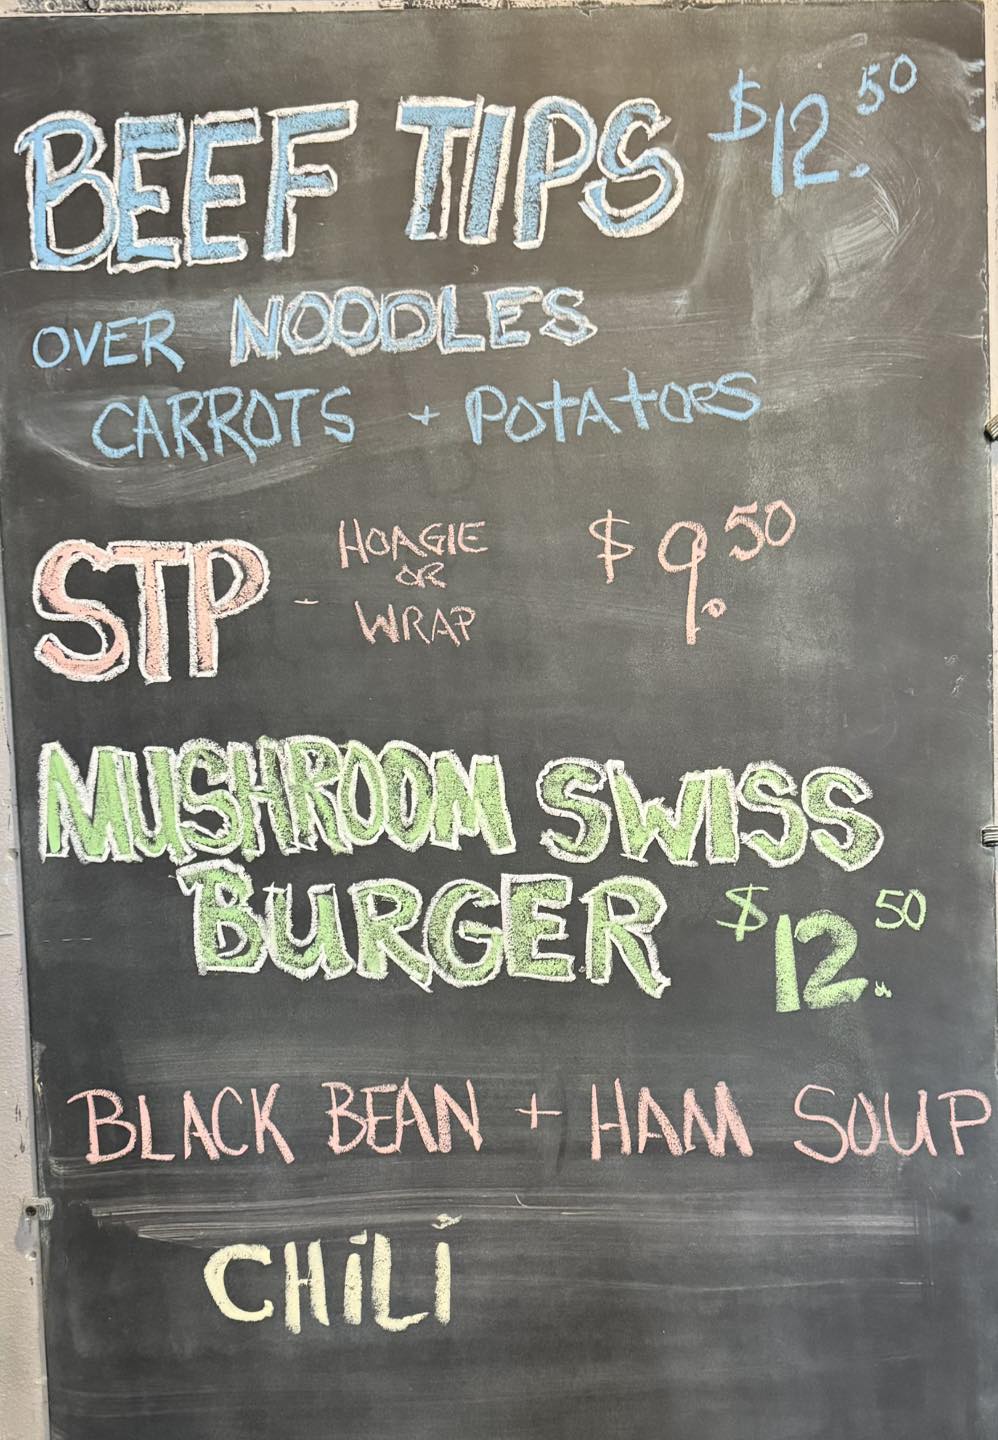 BEEF TIPS $12.50
OVER NOODLES
CARROTS + POTATOES
STP - HOAGIE OR WRAP $9.50
MUSHROOM SWISS
BURGER $12.50
BLACK BEAN + HAM SOUP
CHiLi